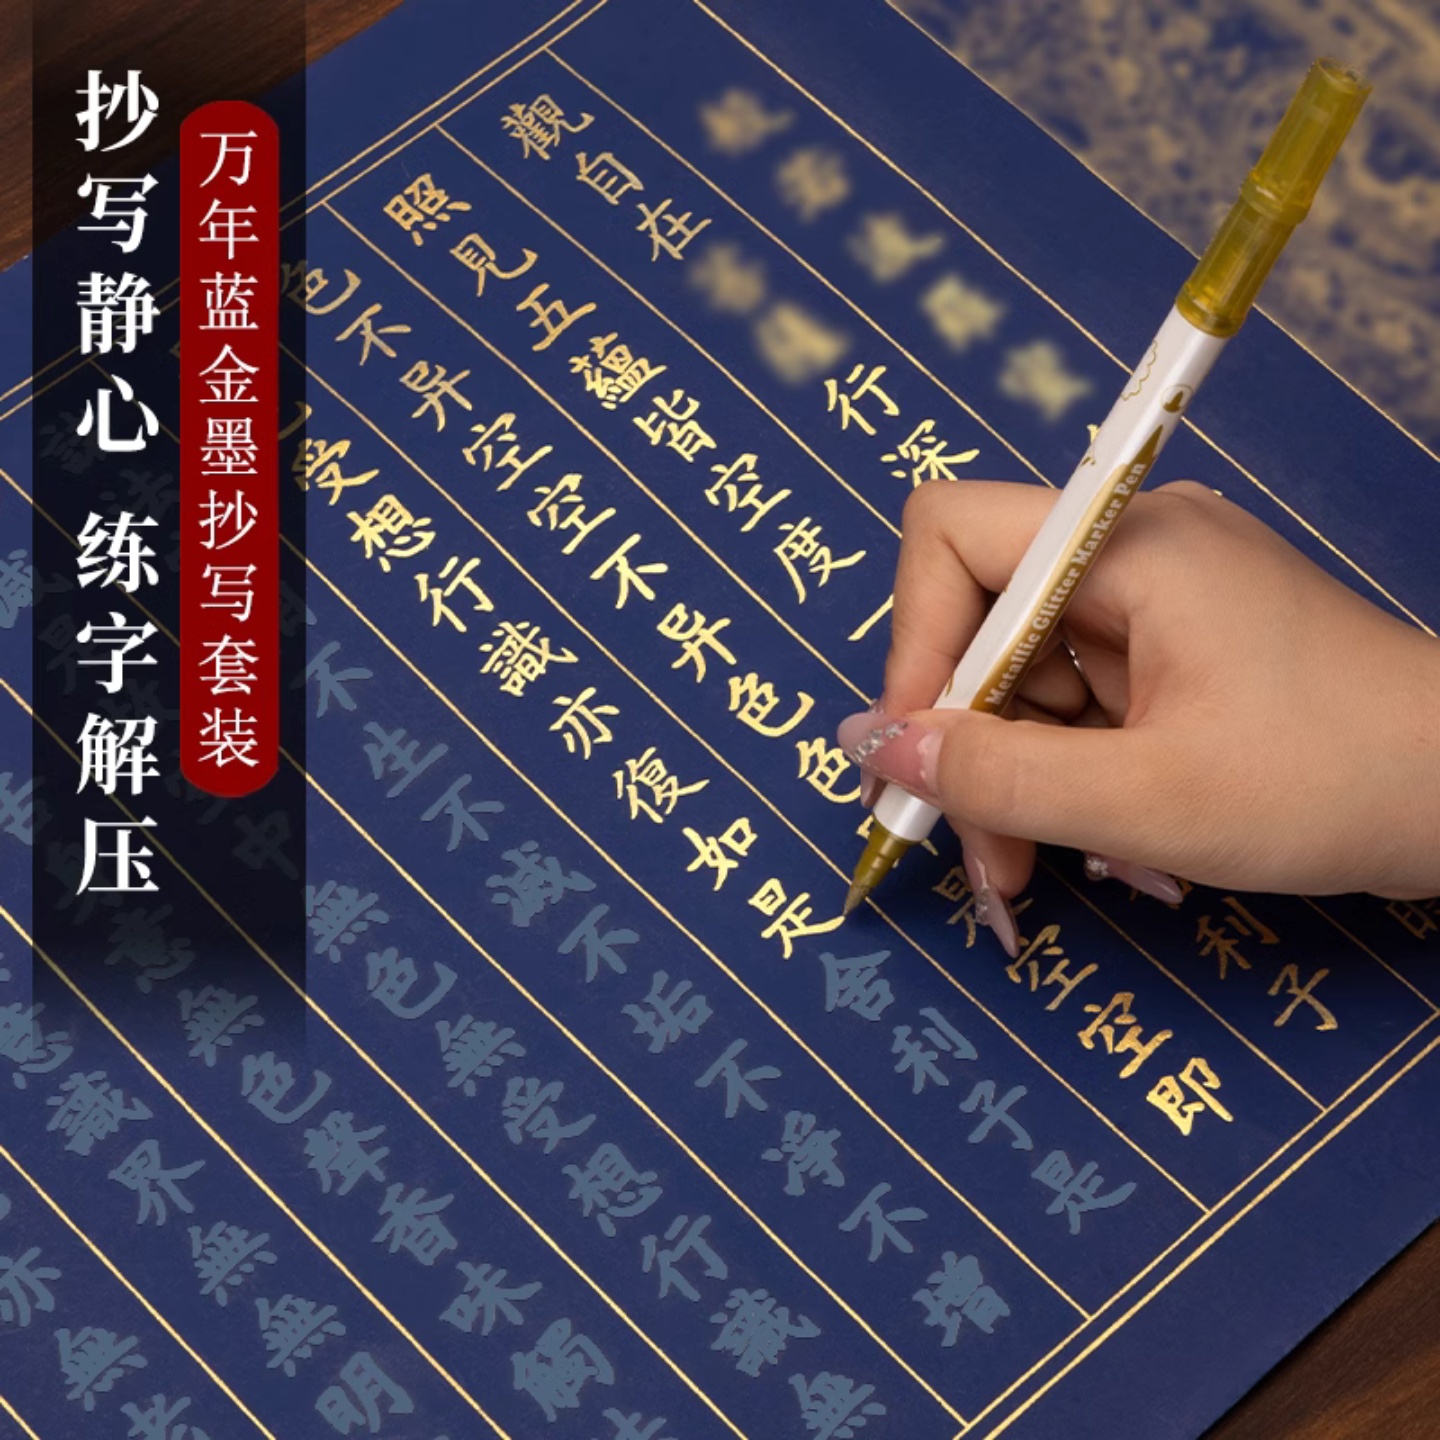 抄写静心 练字解压
万年蓝金墨抄写套装
Metallic Glitter Marker Pen
觀自在
行深
照見五蘊皆空度一
利子
色不异空空不异色色
是空空即
受想行識亦復如是舍利子是
不生不滅不垢不淨不增
中無色無受想行識無
意無色聲香味觸
意識界無無明
亦無老